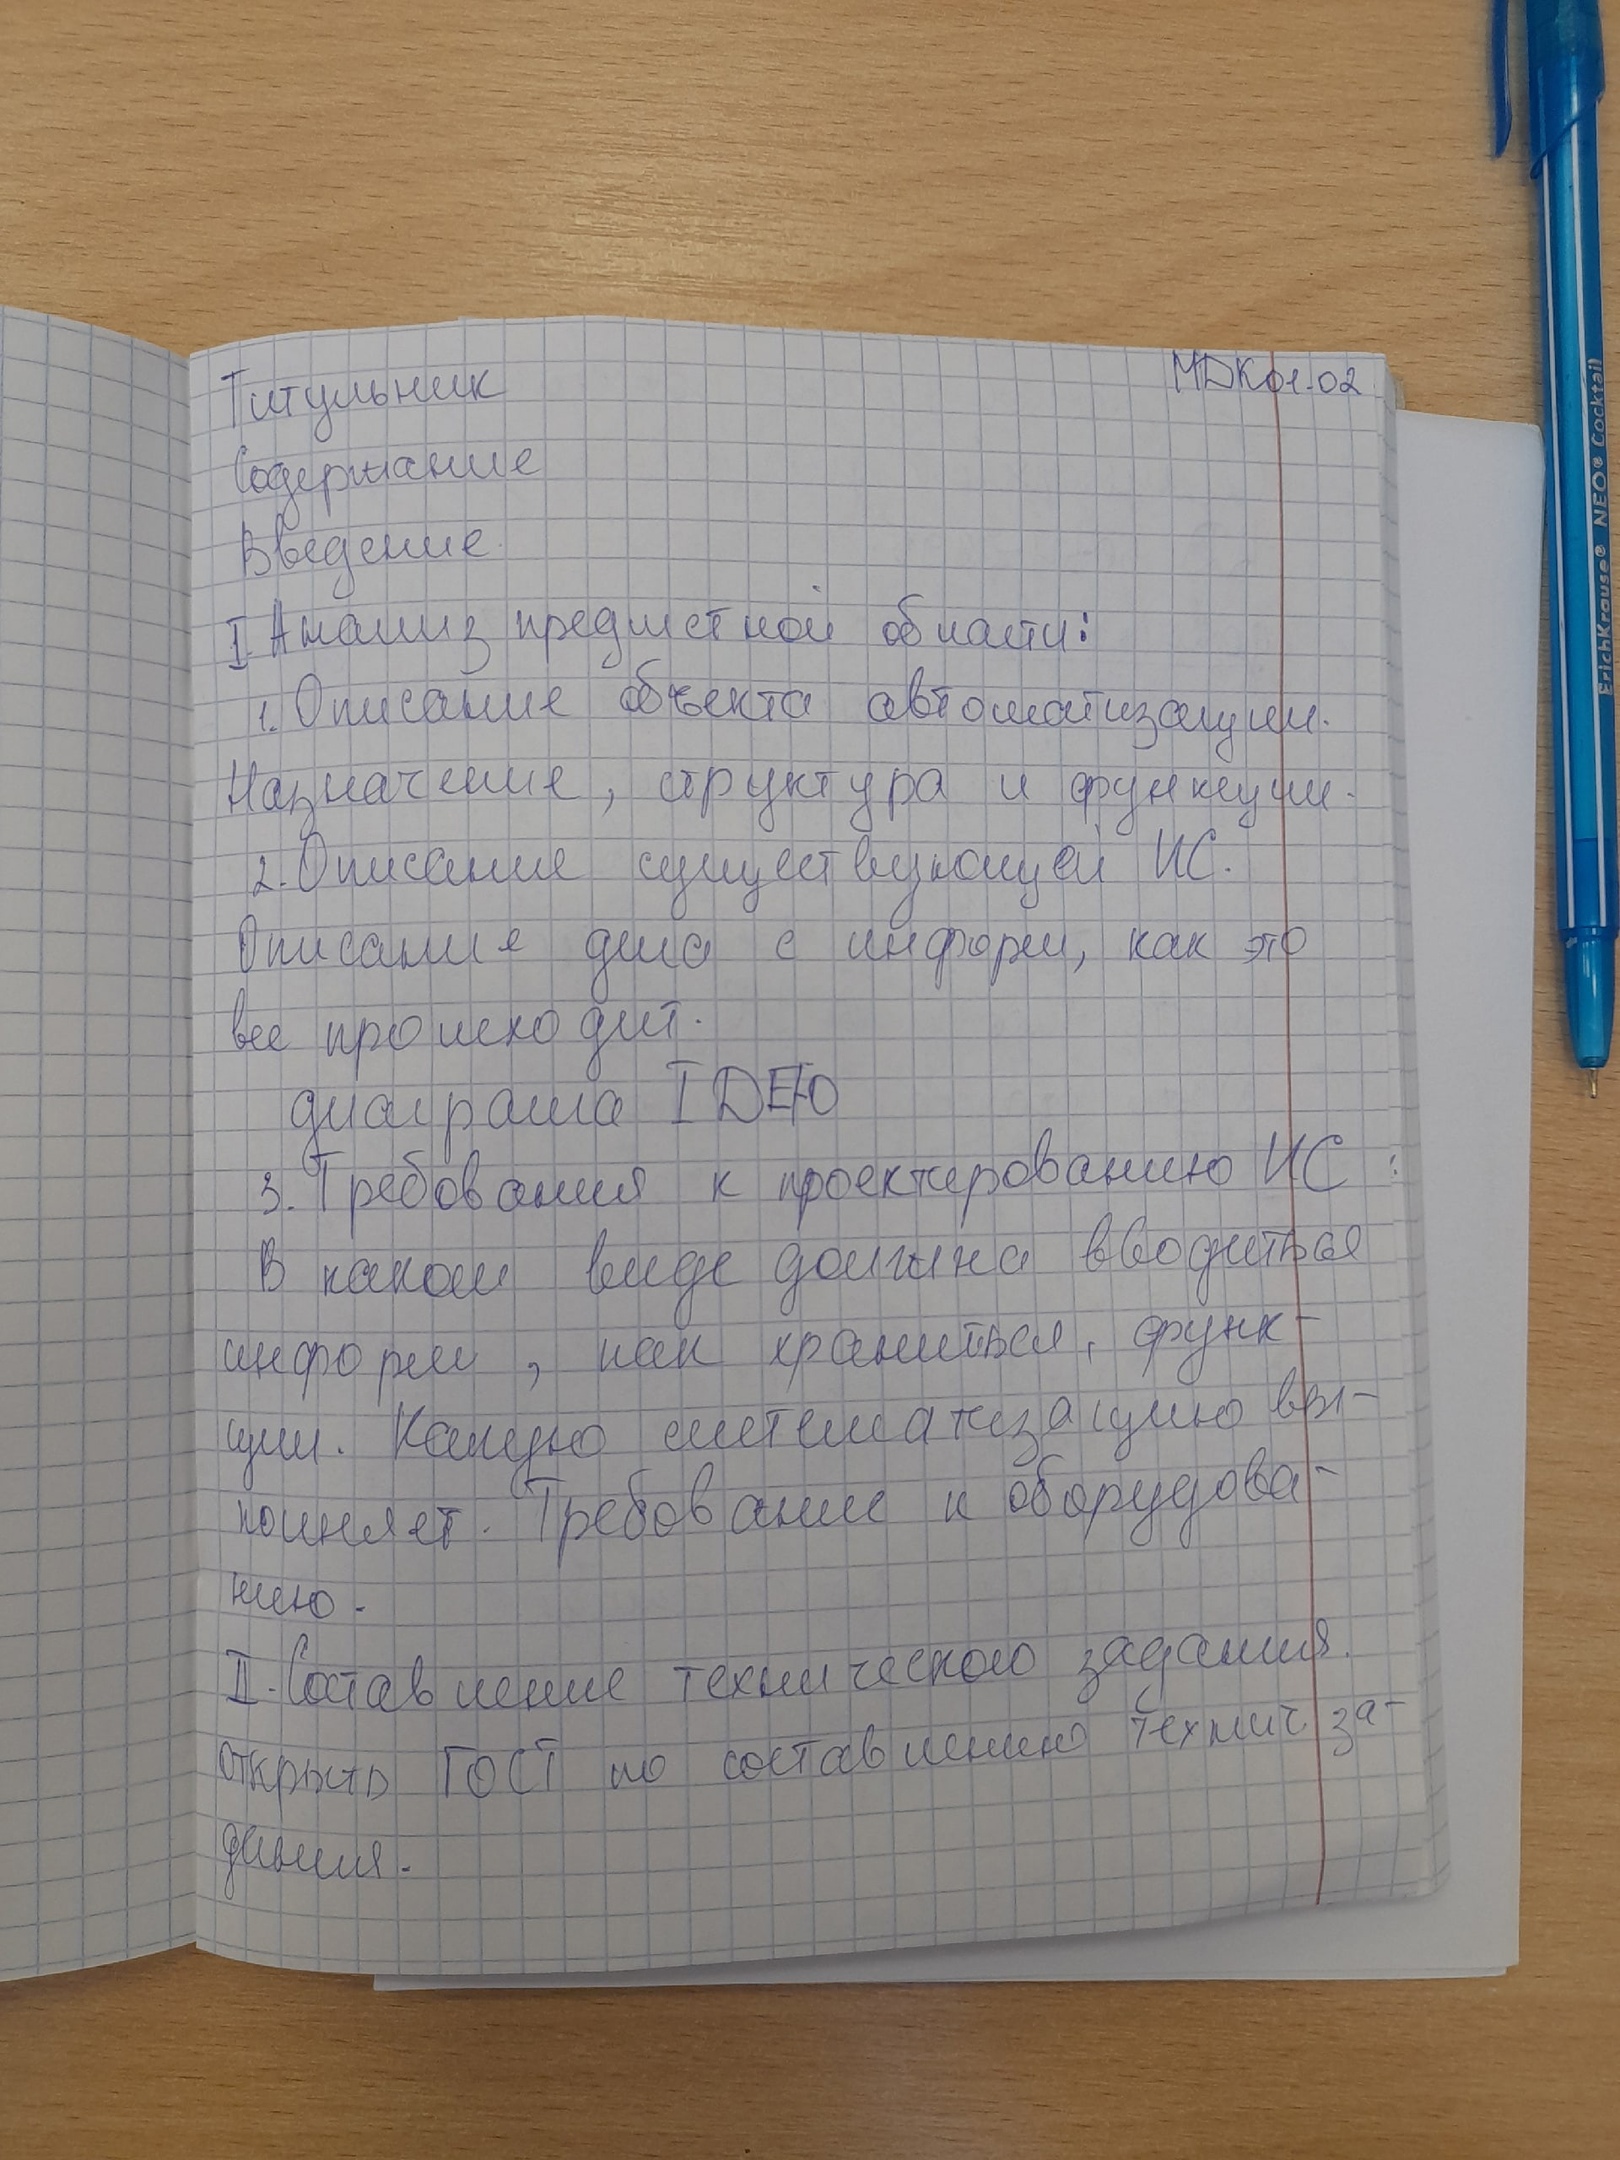 МДК 01.02
Титульник
Содержание
Введение
I. Анализ предметной области:
1. Описание объекта автоматизации.
Назначение, структура и функции.
2. Описание существующей ИС.
Описание с информ, как это
все происходит.
диаграма IDEF0
3. Требования к проектированию ИС:
В каком виде должна вводиться
информ, как храниться, функ-
ции. Какую систематизацию вы-
полняет. Требование к оборудова-
нию.
II. Составление технического задания.
открыть ГОСТ по составлению технич за-
дания.
ErichKrause® NEO® Cocktail